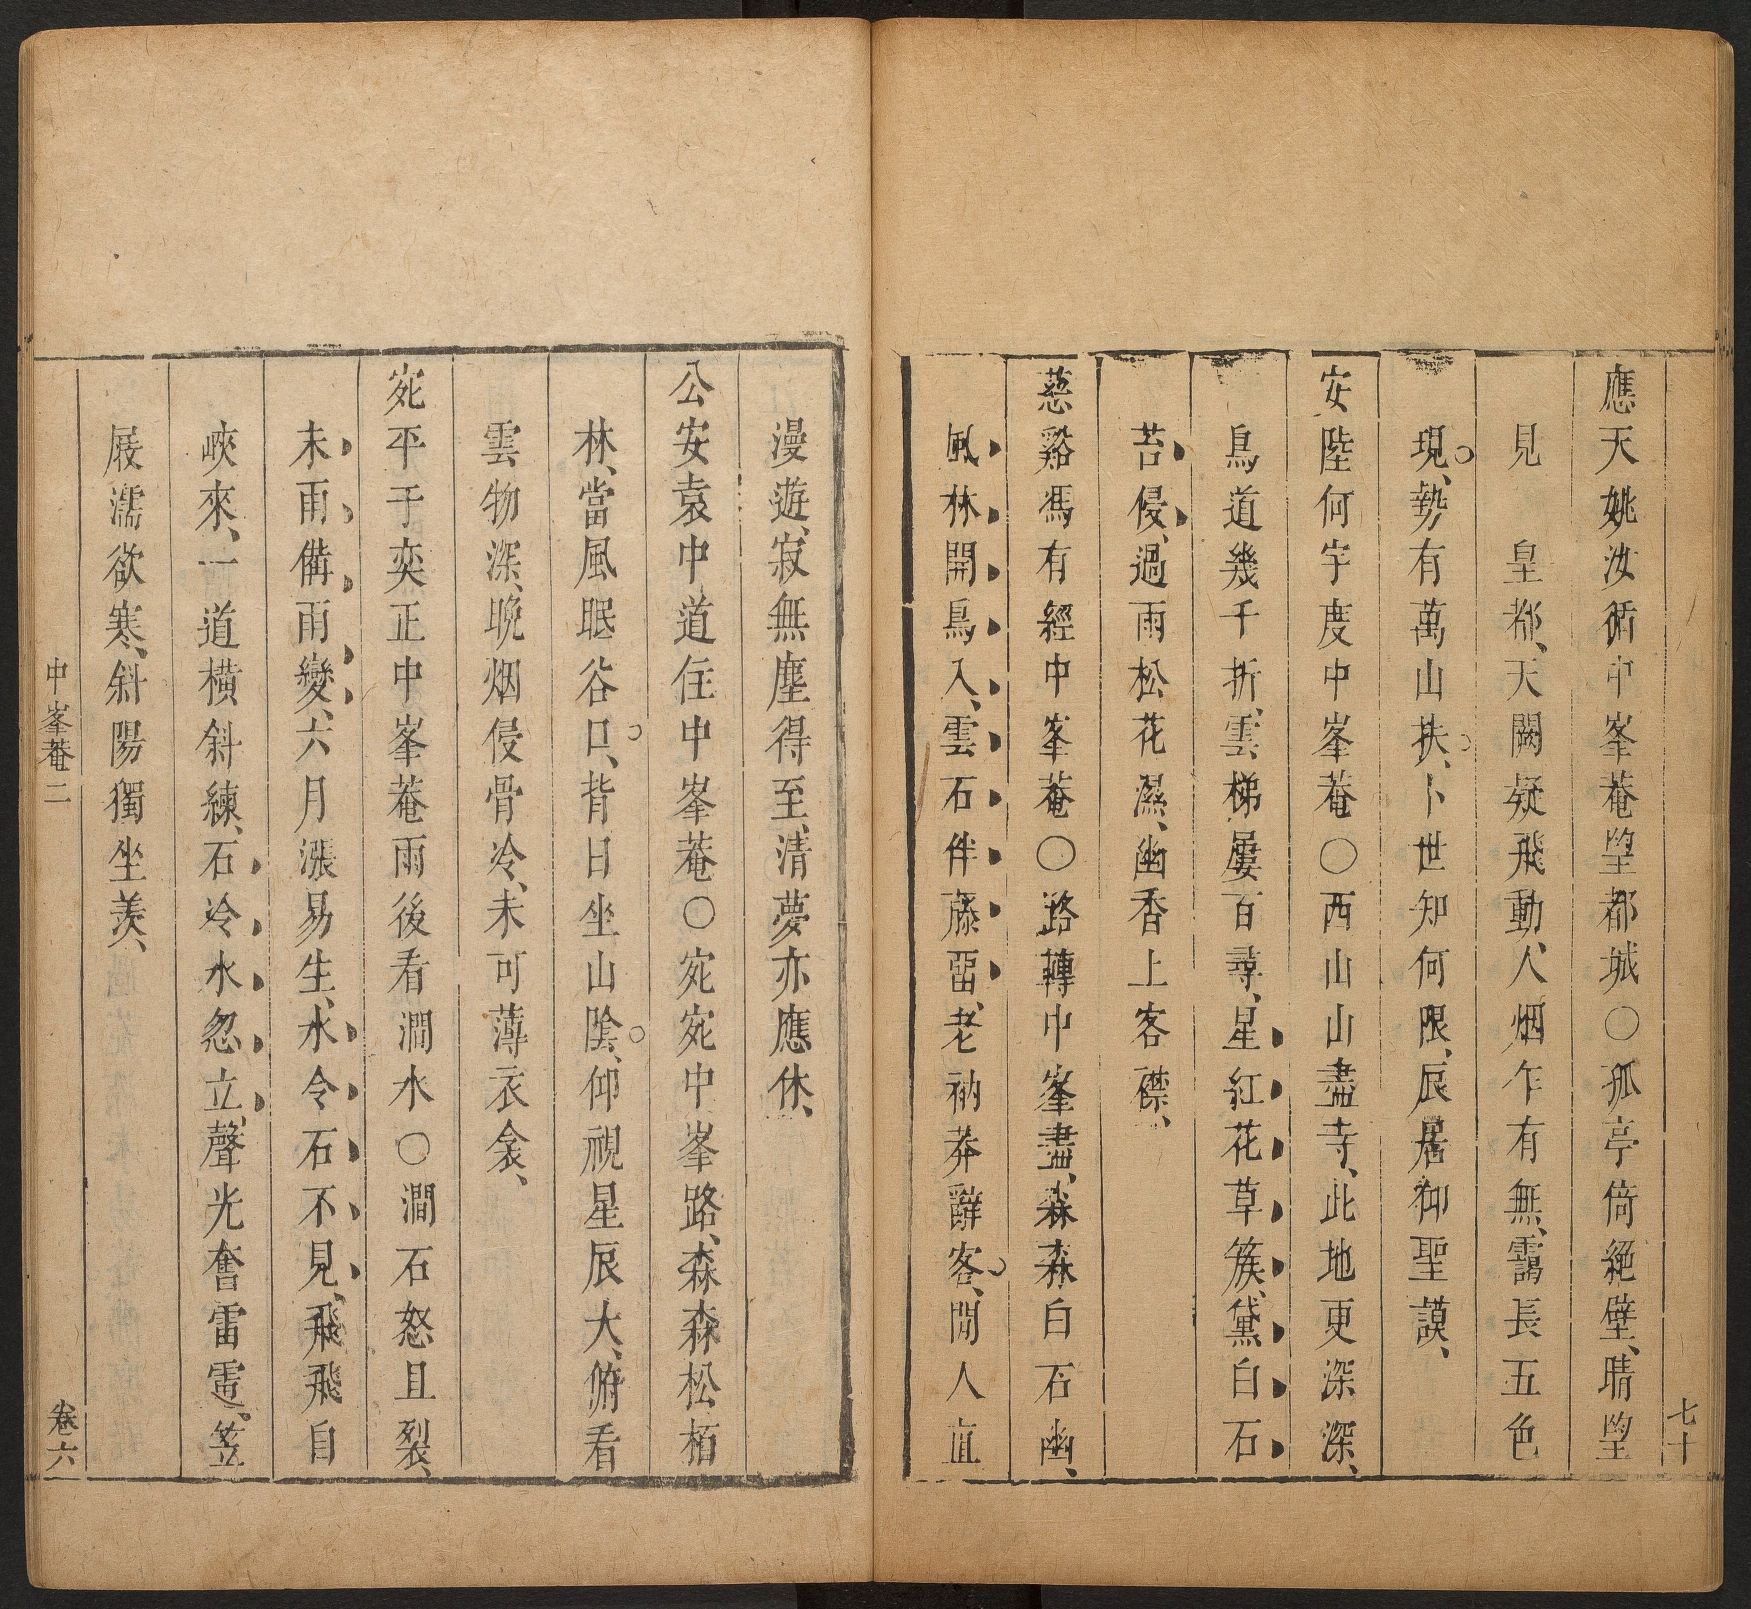 七十
應天姚汝循中峯菴望都城○孤亭倚絕壁、晴望
見　皇都、天闕疑飛動、人烟乍有無、靄長五色
現、勢有萬山扶、卜世知何限、辰居仰聖謨、
安陸何宇度中峯菴○西山山盡寺、此地更深深、
鳥道幾千折、雲梯屢百尋、星紅花草簇、黛白石
苔侵、過雨松花濕、幽香上客襟、
慈谿馮有經中峯菴○路轉中峯盡、森森白石幽、
風林開鳥入、雲石伴藤畱、老衲莽辭客、閒人直
漫遊、寂無塵得至、清夢亦應休、
公安袁中道住中峯菴○宛宛中峯路、森森松栢
林、當風眠谷口、背日坐山陰、仰視星辰大、俯看
雲物深、晚烟侵骨冷、未可薄衣衾、
宛平于奕正中峯菴雨後看澗水○澗石怒且裂、
未雨備雨變、六月漲易生、水令石不見、飛飛自
峽來、一道橫斜練、石冷水忽立、聲光奮雷電、笠
屐濡欲寒、斜陽獨坐羨、
中峯菴二　卷六